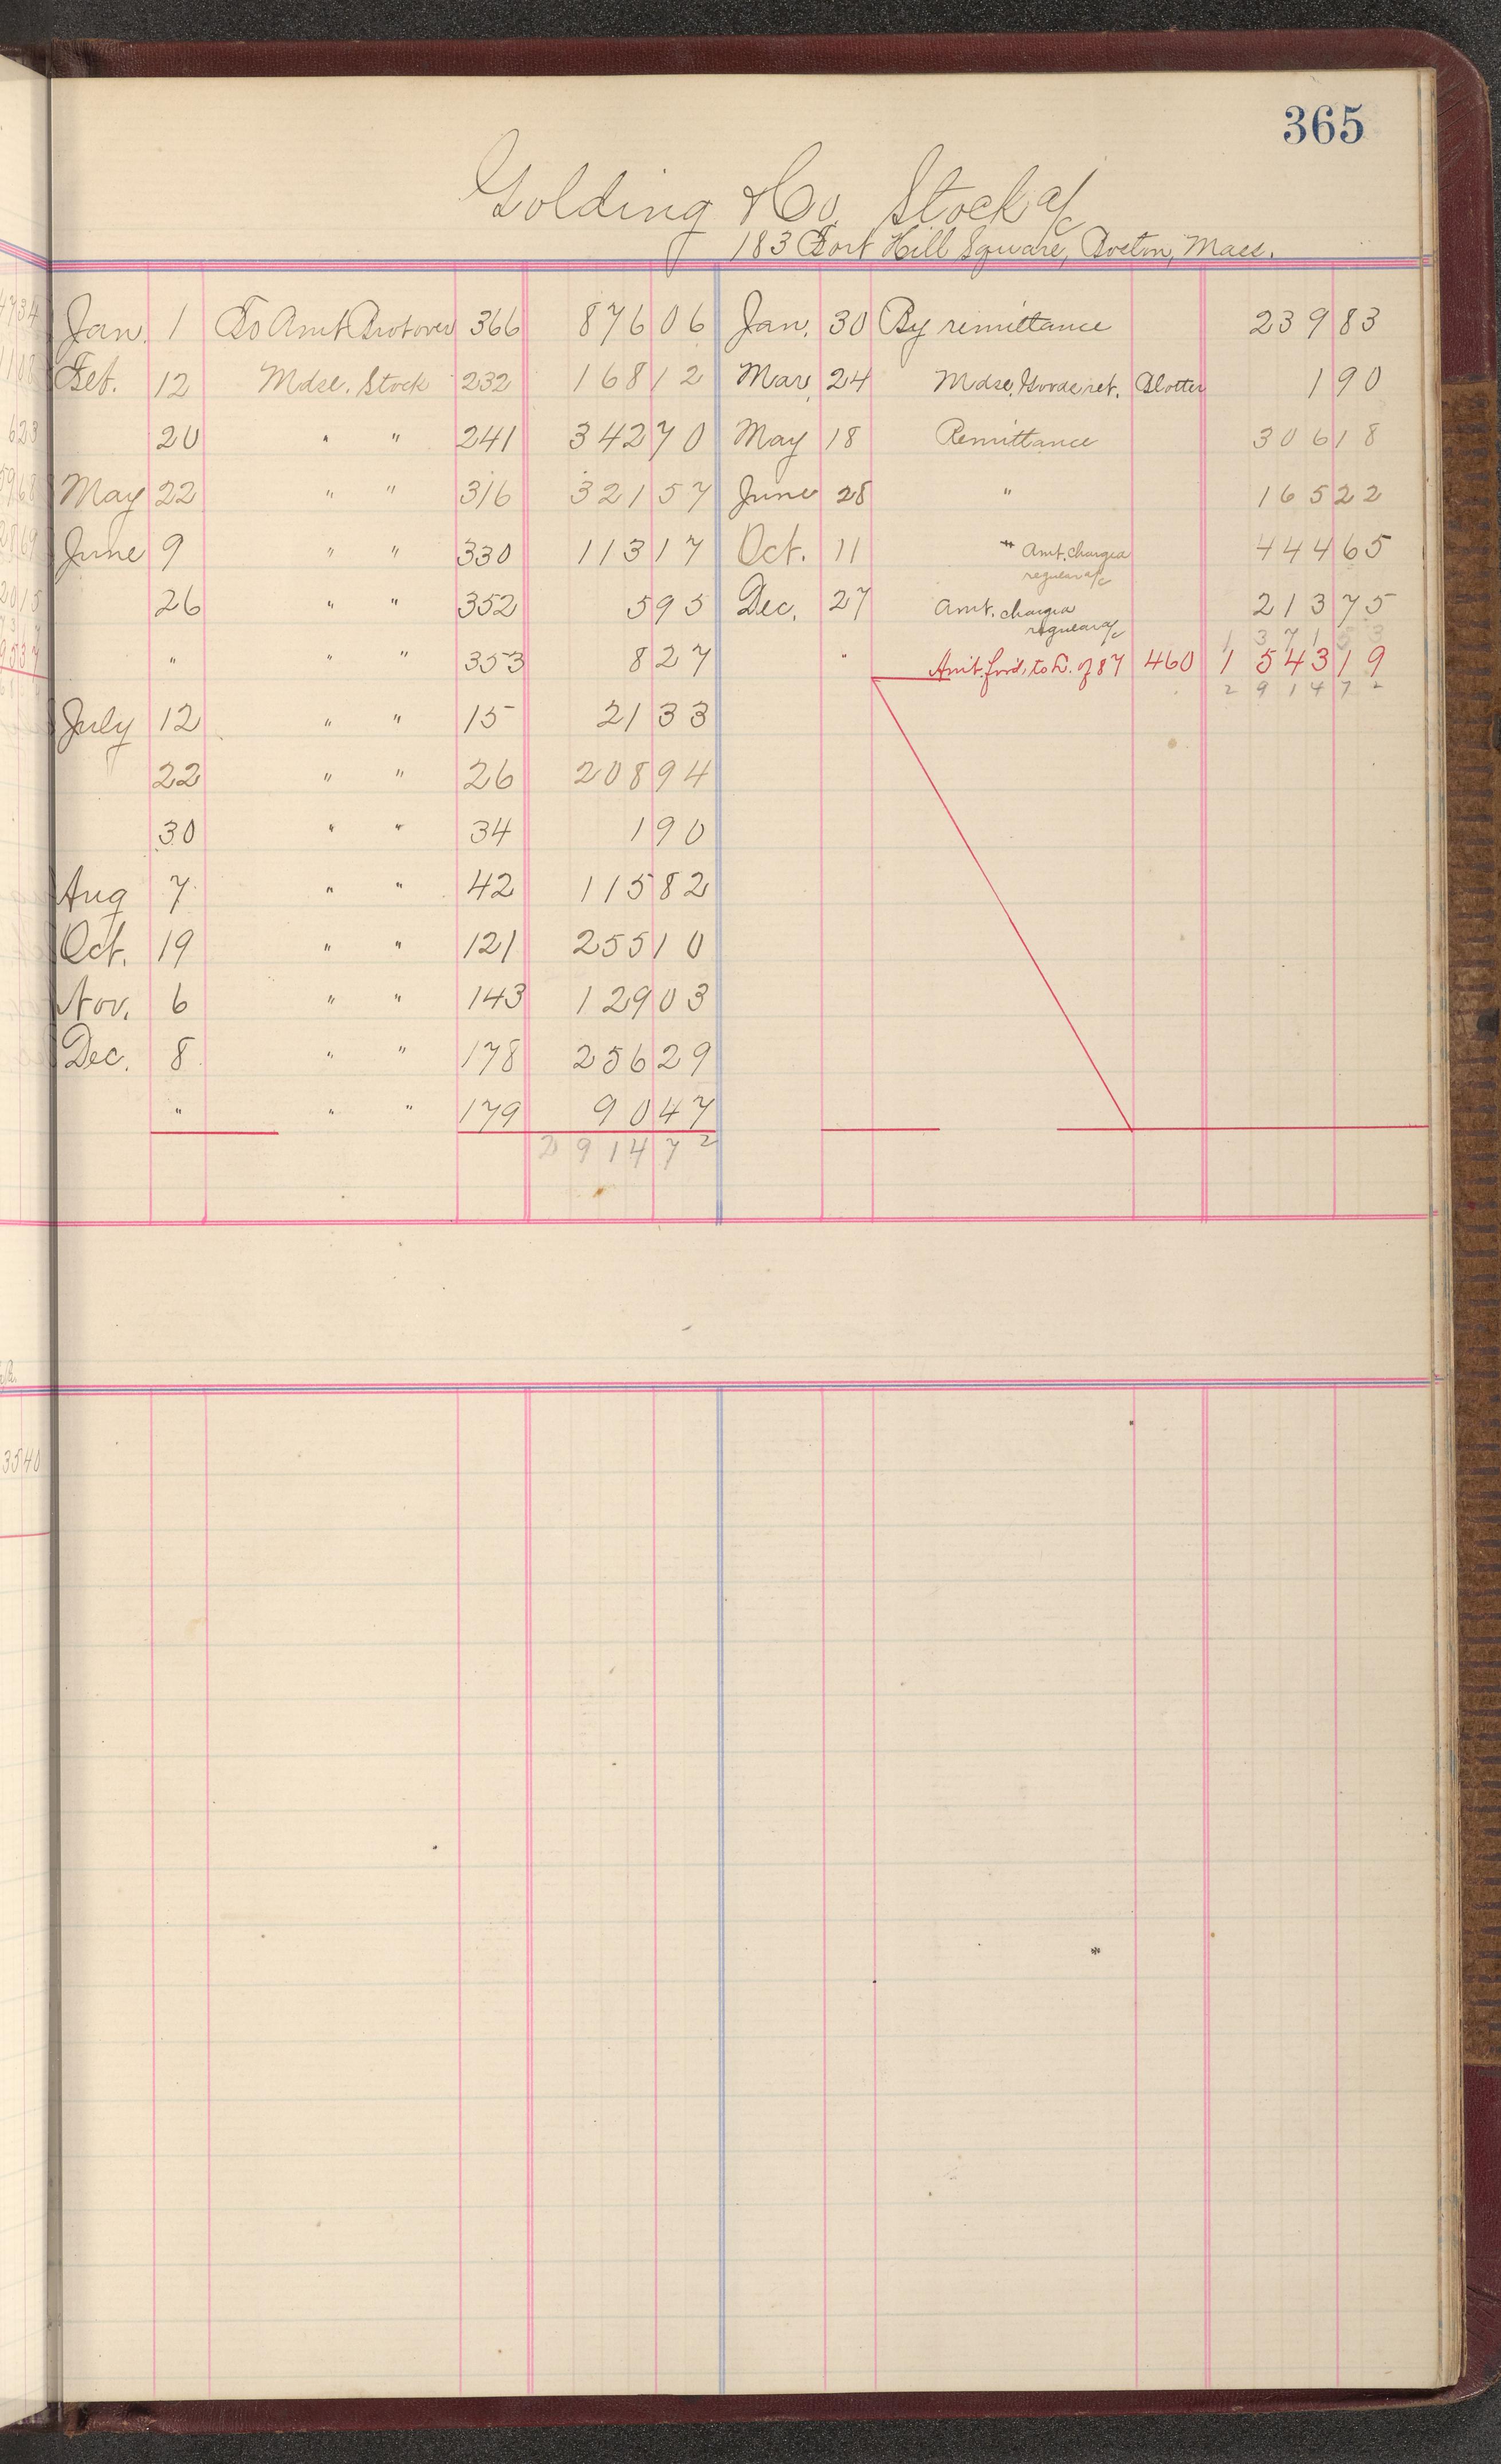 365
Golding & Co. Stock a/c
183 Fort Hill Square, Boston, Mass.
Jan. 1 To Amt Brot over 366 876 06 Jan. 30 By remittance 239 83
Feb. 12 Mdse. Stock 232 168 12 Mar. 24 Mdse. Goods ret. Blotter 1 90
20 " " 241 342 70 May 18 Remittance 306 18
May 22 " " 316 321 57 June 28 " 165 22
June 9 " " 330 113 17 Oct. 11 " Amt. chargea 444 65
regular a/c
26 " " 352 5 95 Dec. 27 Amt. chargea 213 75
regular a/c
1 371 53
" " " 353 8 27 " Amt. ford. to L. of 87 460 1 543 19
2 914 72
July 12 " " 15 21 33
22 " " 26 208 94
30 " " 34 1 90
Aug 7 " " 42 115 82
Oct. 19 " " 121 255 10
Nov. 6 " " 143 129 03
Dec. 8 " " 178 256 29
" " " 179 90 47
2 914 72
3540